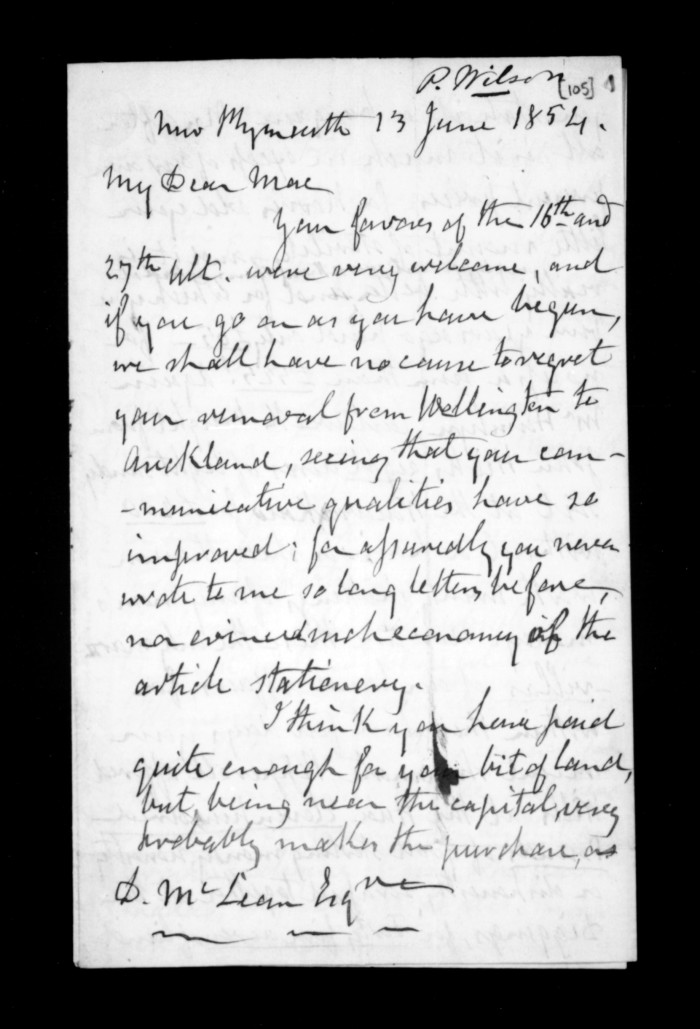 P. Wilson
[105] 1
New Plymouth 13 June 1854.
My Dear Mac
Your favors of the 16th and
27th ult. were very welcome, and
if you go on as you have begun,
we shall have no cause to regret
your removal from Wellington to
Auckland, seeing that your com-
-municative qualities have so
improved; for assuredly you never
wrote to me so long letters before,
nor evinced such economy of the
article stationery.
I think you have paid
quite enough for your bit of land,
but, being near the capital, very
probably makes the purchase, as
D. McLean Esqre